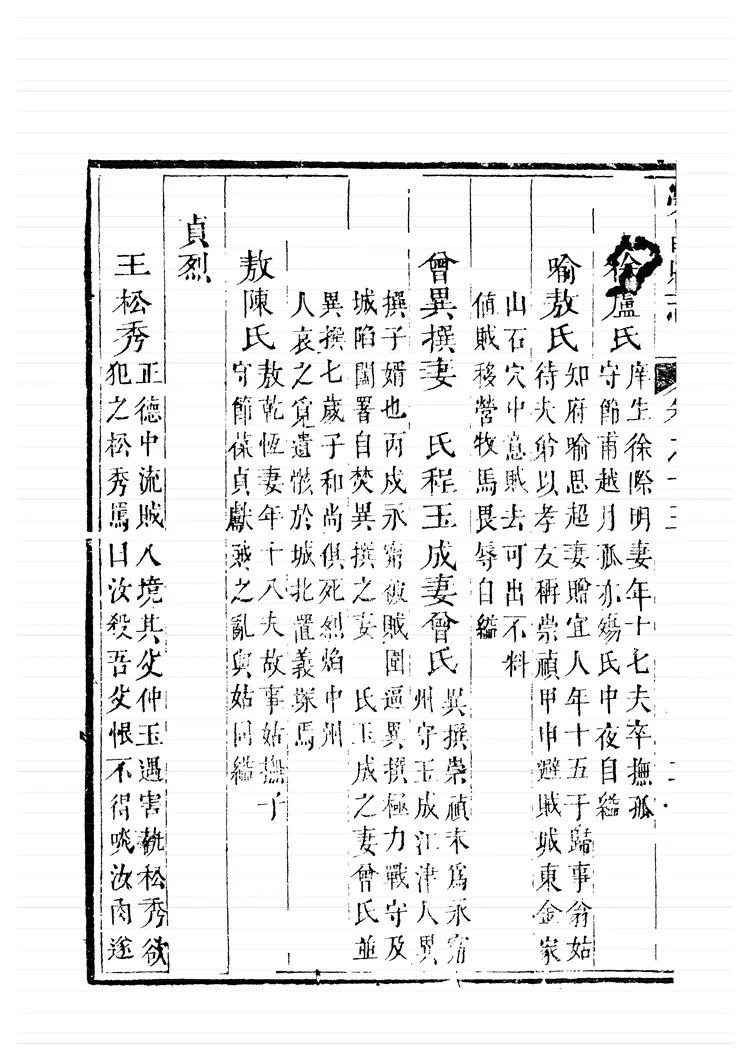 卷六十三
徐盧氏
庠生徐際明妻年十七夫卒撫孤
守節甫越月孤亦殤氏中夜自縊
喻敖氏
知府喻思超妻贈宜人年十五于歸事翁姑
待夫弟以孝友稱崇禎甲申避賊城東金家
山石穴中意賊去可出不料
值賊移營牧馬畏辱自縊
曾異撰妻 氏程玉成妻曾氏
異撰崇禎末為永甯
州守玉成江津人異
撰子婿也丙戌永甯被賊圍逼異撰極力戰守及
城陷闔署自焚異撰之妻 氏玉成之妻曾氏並
異撰七歲子和尚俱死烈焰中州
人哀之覓遺骸於城北置義塚焉
敖陳氏
敖乾恆妻年十八夫故事姑撫子
守節葆貞獻燕之亂與姑同縊
貞烈
王松秀
正德中流賊入境其父仲玉遇害執松秀欲
犯之松秀罵曰汝殺吾父恨不得啖汝肉遂